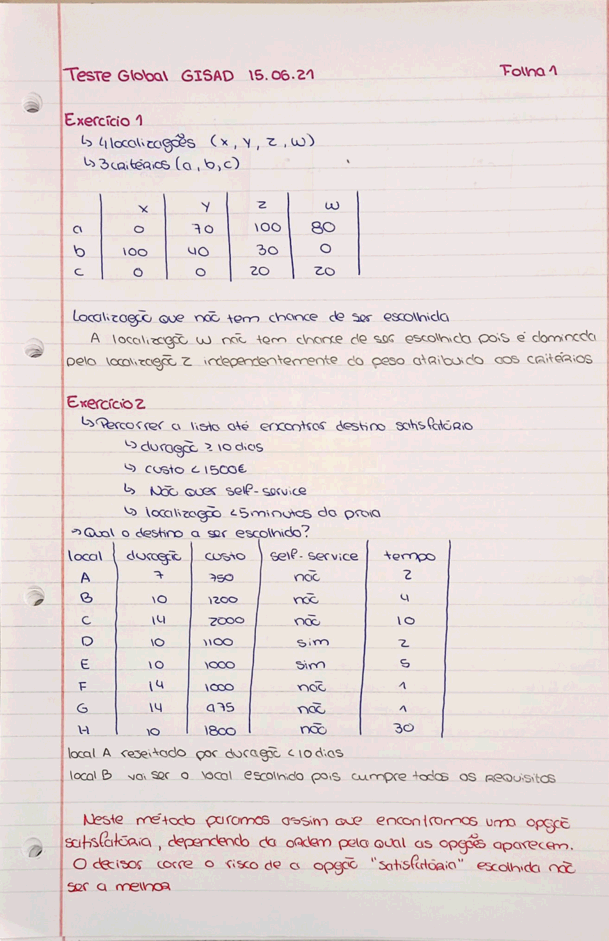 Teste Global GISAD 15.06.21 Folha 1
Exercício 1
↳ 4 localizações (x, y, z, w)
↳ 3 critérios (a, b, c)
x y z w
a 0 70 100 80
b 100 40 30 0
c 0 0 20 20
Localização que não tem chance de ser escolhida
A localização w não tem chance de ser escolhida pois é dominada
pela localização z independentemente do peso atribuido aos critérios
Exercício 2
↳ Percorrer a lista até encontrar destino satisfatório
↳ duração ≥ 10 dias
↳ custo < 1500€
↳ Não quer self-service
↳ localização < 5 minutos da praia
→ Qual o destino a ser escolhido?
local duração custo self-service tempo
A 7 750 não 2
B 10 1200 não 4
C 14 2000 não 10
D 10 1100 sim 2
E 10 1000 sim 5
F 14 1000 não 1
G 14 975 não 1
H 10 1800 não 30
local A rejeitado por duração < 10 dias
local B vai ser o local escolhido pois cumpre todos os requisitos
Neste método paramos assim que encontramos uma opção
satisfatória, dependendo da ordem pela qual as opções aparecem.
O decisor corre o risco de a opção "satisfatória" escolhida não
ser a melhor